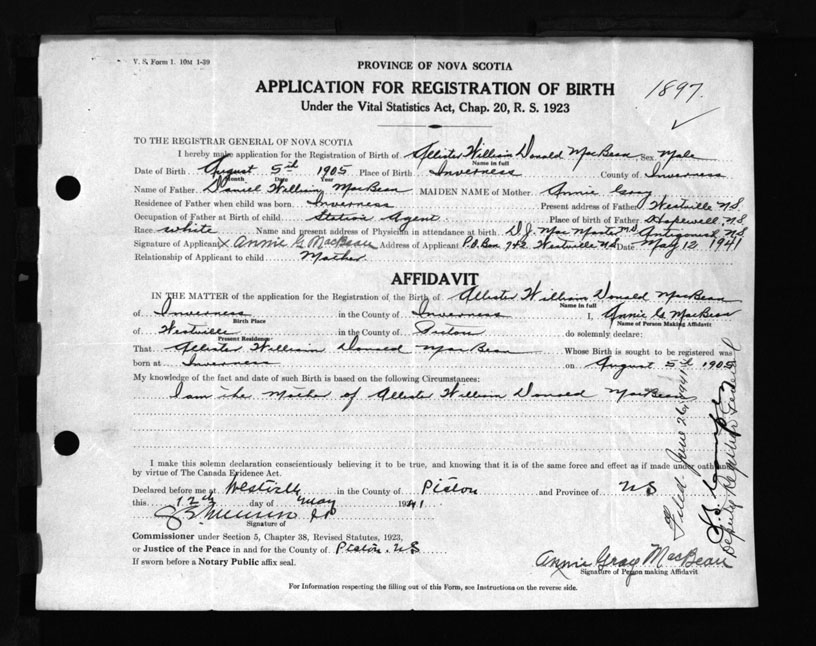 V. S. Form 1. 10M 1-39
PROVINCE OF NOVA SCOTIA
APPLICATION FOR REGISTRATION OF BIRTH
Under the Vital Statistics Act, Chap. 20, R. S. 1923
1897.
TO THE REGISTRAR GENERAL OF NOVA SCOTIA
I hereby make application for the Registration of Birth of Allister William Donald MacBean Sex Male
Name in full
Date of Birth August 5th 1905 Place of Birth Inverness County of Inverness
Month Date Year
Name of Father Daniel William MacBean MAIDEN NAME of Mother Annie Gray
Residence of Father when child was born Inverness Present address of Father Westville N.S.
Occupation of Father at Birth of child Station Agent Place of birth of Father Hopewell, N.S.
Race white Name and present address of Physician in attendance at birth D. J. MacMaster MD Antigonish N.S
Signature of Applicant x Annie G MacBean Address of Applicant P.O. Box 742 Westville N.S Date May 12 1941
Relationship of Applicant to child Mother
AFFIDAVIT
IN THE MATTER of the application for the Registration of the Birth of Allister William Donald MacBean
Name in full
of Inverness in the County of Inverness I, Annie G MacBean
Birth Place Name of Person Making Affidavit
of Westville in the County of Pictou do solemnly declare:
Present Residence
That Allister William Donald MacBean Whose Birth is sought to be registered was
born at Inverness on August 5th 1905
My knowledge of the fact and date of such Birth is based on the following Circumstances:
I am the Mother of Allister William Donald MacBean
I make this solemn declaration conscientiously believing it to be true, and knowing that it is of the same force and effect as if made under oath and
by virtue of The Canada Evidence Act.
Declared before me at Westville in the County of Pictou and Province of N S
this 12th day of May 1941
Signature of
Commissioner under Section 5, Chapter 38, Revised Statutes, 1923,
or Justice of the Peace in and for the County of Pictou. N.S
If sworn before a Notary Public affix seal.
Annie Gray MacBean
Signature of Person making Affidavit
For Information respecting the filling out of this Form, see Instructions on the reverse side.
Filed June 26, 1941
Deputy Registrar General